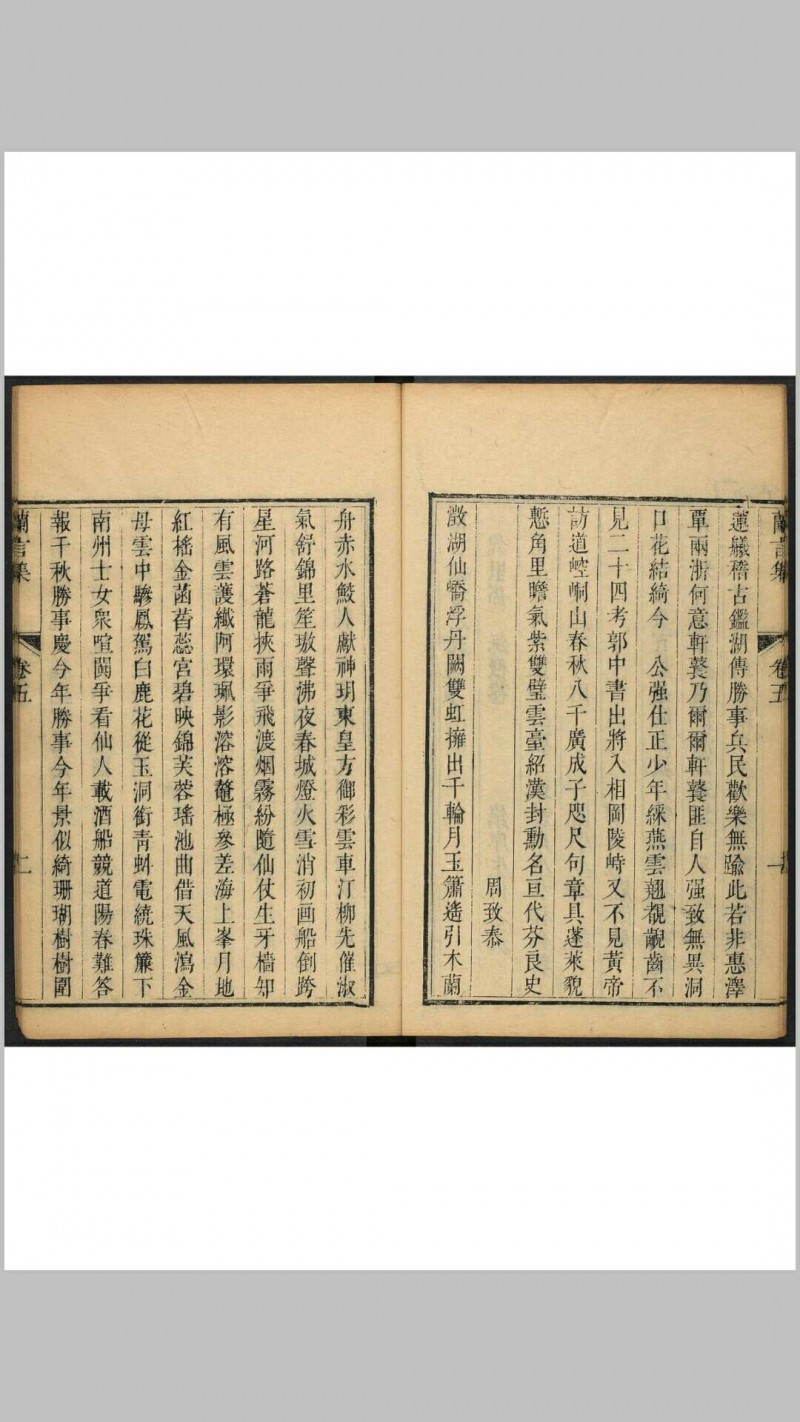 蘭言集
卷五
一
蓮艤稽古鑑湖傳勝事兵民歡樂無踰此若非惠澤
覃兩浙何意軒鼚乃爾爾軒鼚匪自人强致無異洞
口花結綺今 公强仕正少年綵燕雲翹覩齯齒不
見二十四考郭中書出將入相岡陵峙又不見黃帝
訪道崆峒山春秋八千廣成子咫尺句章具蓬萊貌
慙角里瞻氣紫雙璧雲臺紹漢封勳名亘代芬良史
周致㤗
瀫湖仙嶠浮丹闕雙虹擁出千輪月玉簫遙引木蘭
舟赤水鮫人獻神玥東皇方御彩雲車汀柳先催淑
氣舒錦里笙璈聲沸夜春城燈火雪消初画船倒跨
星河路蒼龍挾雨爭飛渡烟霧紛隨仙仗生牙檣却
有風雲護纖阿環珮影溶溶鼇極參差海上峯月地
紅榣金菡萏蕊宮碧映錦芙蓉瑤池曲借天風瀉金
母雲中驂鳳駕白鹿花從玉洞銜青虯電繞珠簾下
南州士女衆喧闐爭看仙人載酒船競道陽春難答
報千秋勝事慶今年勝事今年景似綺珊瑚樹樹圍
蘭言集
卷五
二